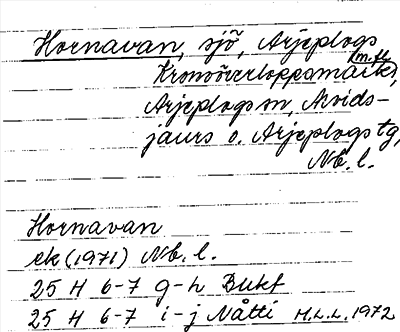 Hornavan, sjö, Arjeplogs
Kronoöverloppsmark (m.fl.),
Arjeplogs sn, Arvids-
jaurs o. Arjeplogs tg,
Nb. l.
Hornavan
ek (1971) Nb. l.
25 H 6-7 g-h Bukt
25 H 6-7 i-j Nåtti H.L.L. 1972